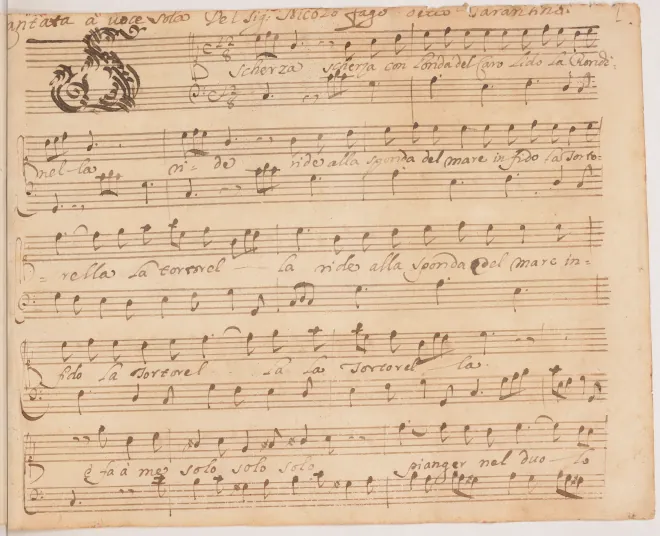 Cantata à voce sola Del Sig. Nicolo Fago detto Tarantino. 1.
Scherza scherza con l'onda del caro lido la Rondi-
nel-la ri-de ride alla sponda del mare infido la Torto-
-rella la tortorel - la ride alla sponda del mare in-
fido la Tortorel - la la Tortorel - la.
e fa à me solo solo solo pianger nel duo - lo